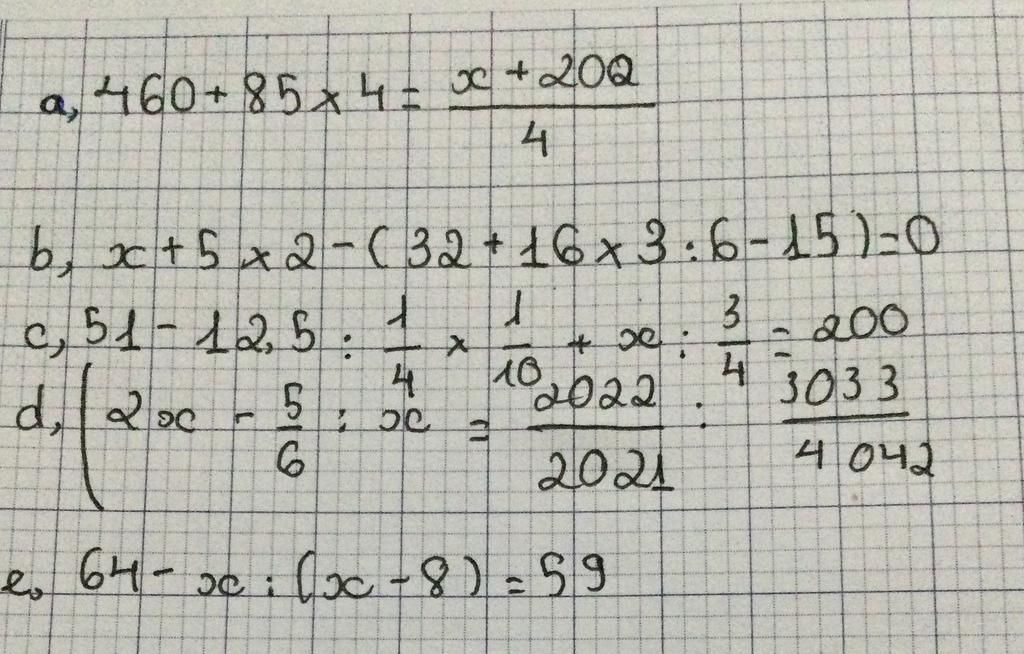 a, 460 + 85 × 4 = \frac{x + 200}{4}
b, x + 5 × 2 - ( 32 + 16 × 3 : 6 - 15 ) = 0
c, 51 - 12,5 : \frac{1}{4} × \frac{1}{10} + x : \frac{3}{4} = 200
d, ( 2x - \frac{5}{6} : x = \frac{2022}{2021} : \frac{3033}{4042}
e, 64 - x : ( x - 8 ) = 59